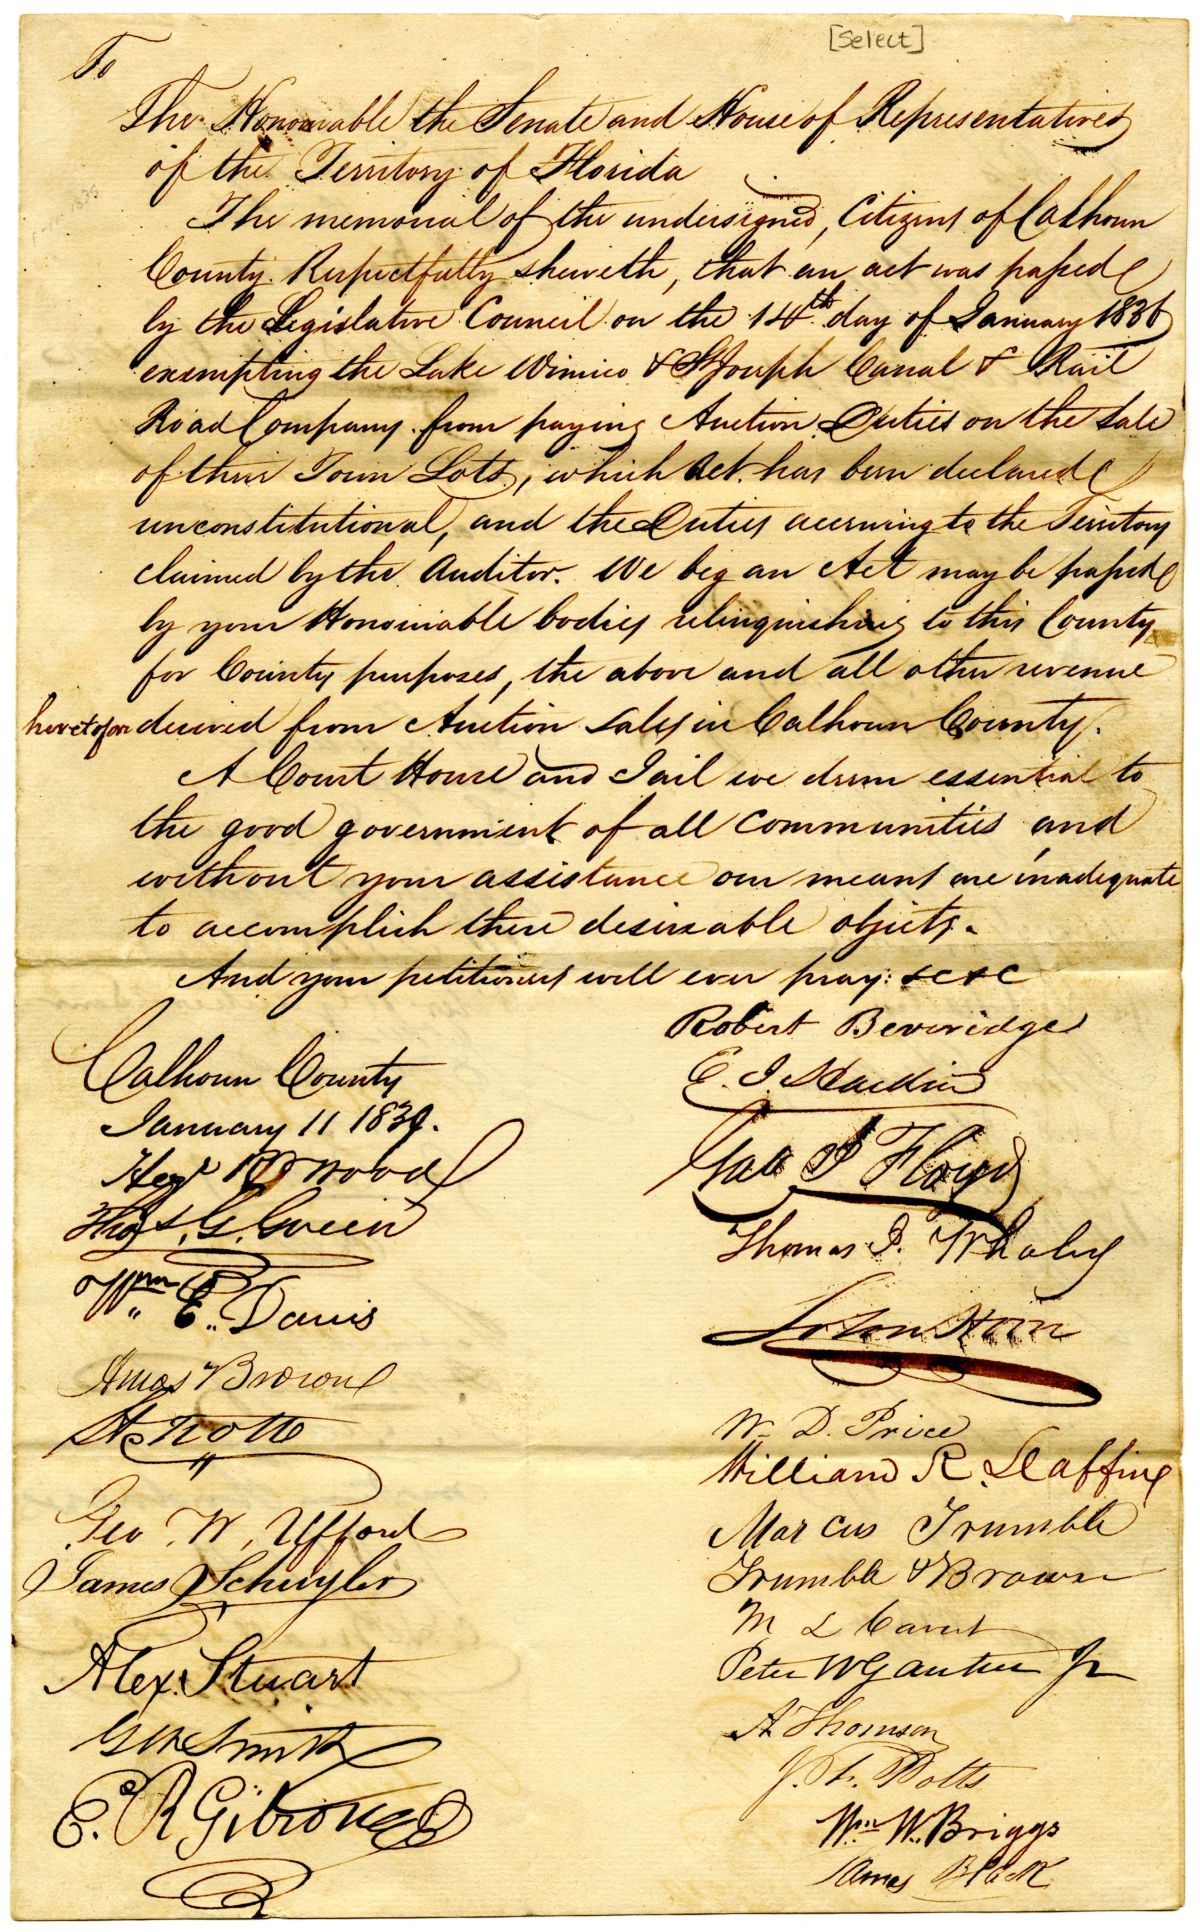 [Select]
To
The Honourable the Senate and House of Representatives
of the Territory of Florida
The memorial of the undersigned, Citizens of Calhoun
County Respectfully sheweth, that an act was passed
by the Legislative Council on the 14th day of January 1836
exempting the Lake Wimico & St Joseph Canal & Rail
Road Company from paying Auction Duties on the sale
of their Town Lots, which Act has been declared
unconstitutional, and the Duties accruing to the Territory
claimed by the Auditor. We beg an Act may be passed
by your Honourable bodies relinquishing to this County
for County purposes, the above and all other revenue
heretofore derived from Auction sales in Calhoun County.
A Court House and Jail we deem essential to
the good government of all communities, and
without your assistance our means are inadequate
to accomplish these desireable objects.
And your petitioners will ever pray: &c &c
Calhoun County
January 11 1839.
Wood
Thos. G. Green
Wm E. Davis
Amos Brown
Geo. W. Ufford
James Schuyler
Alex. Stuart
Geo Smith
E. R. Gibson
Robert Beveridge
E. J. Hardin
Geo J Floyd
Thomas J. Whaley
W. D. Price
William R.
Marcus Trumble
Trumble & Brown
M L
Peter W Gautier Jr
A Thomson
J. L. Potts
Wm W. Briggs
James Black